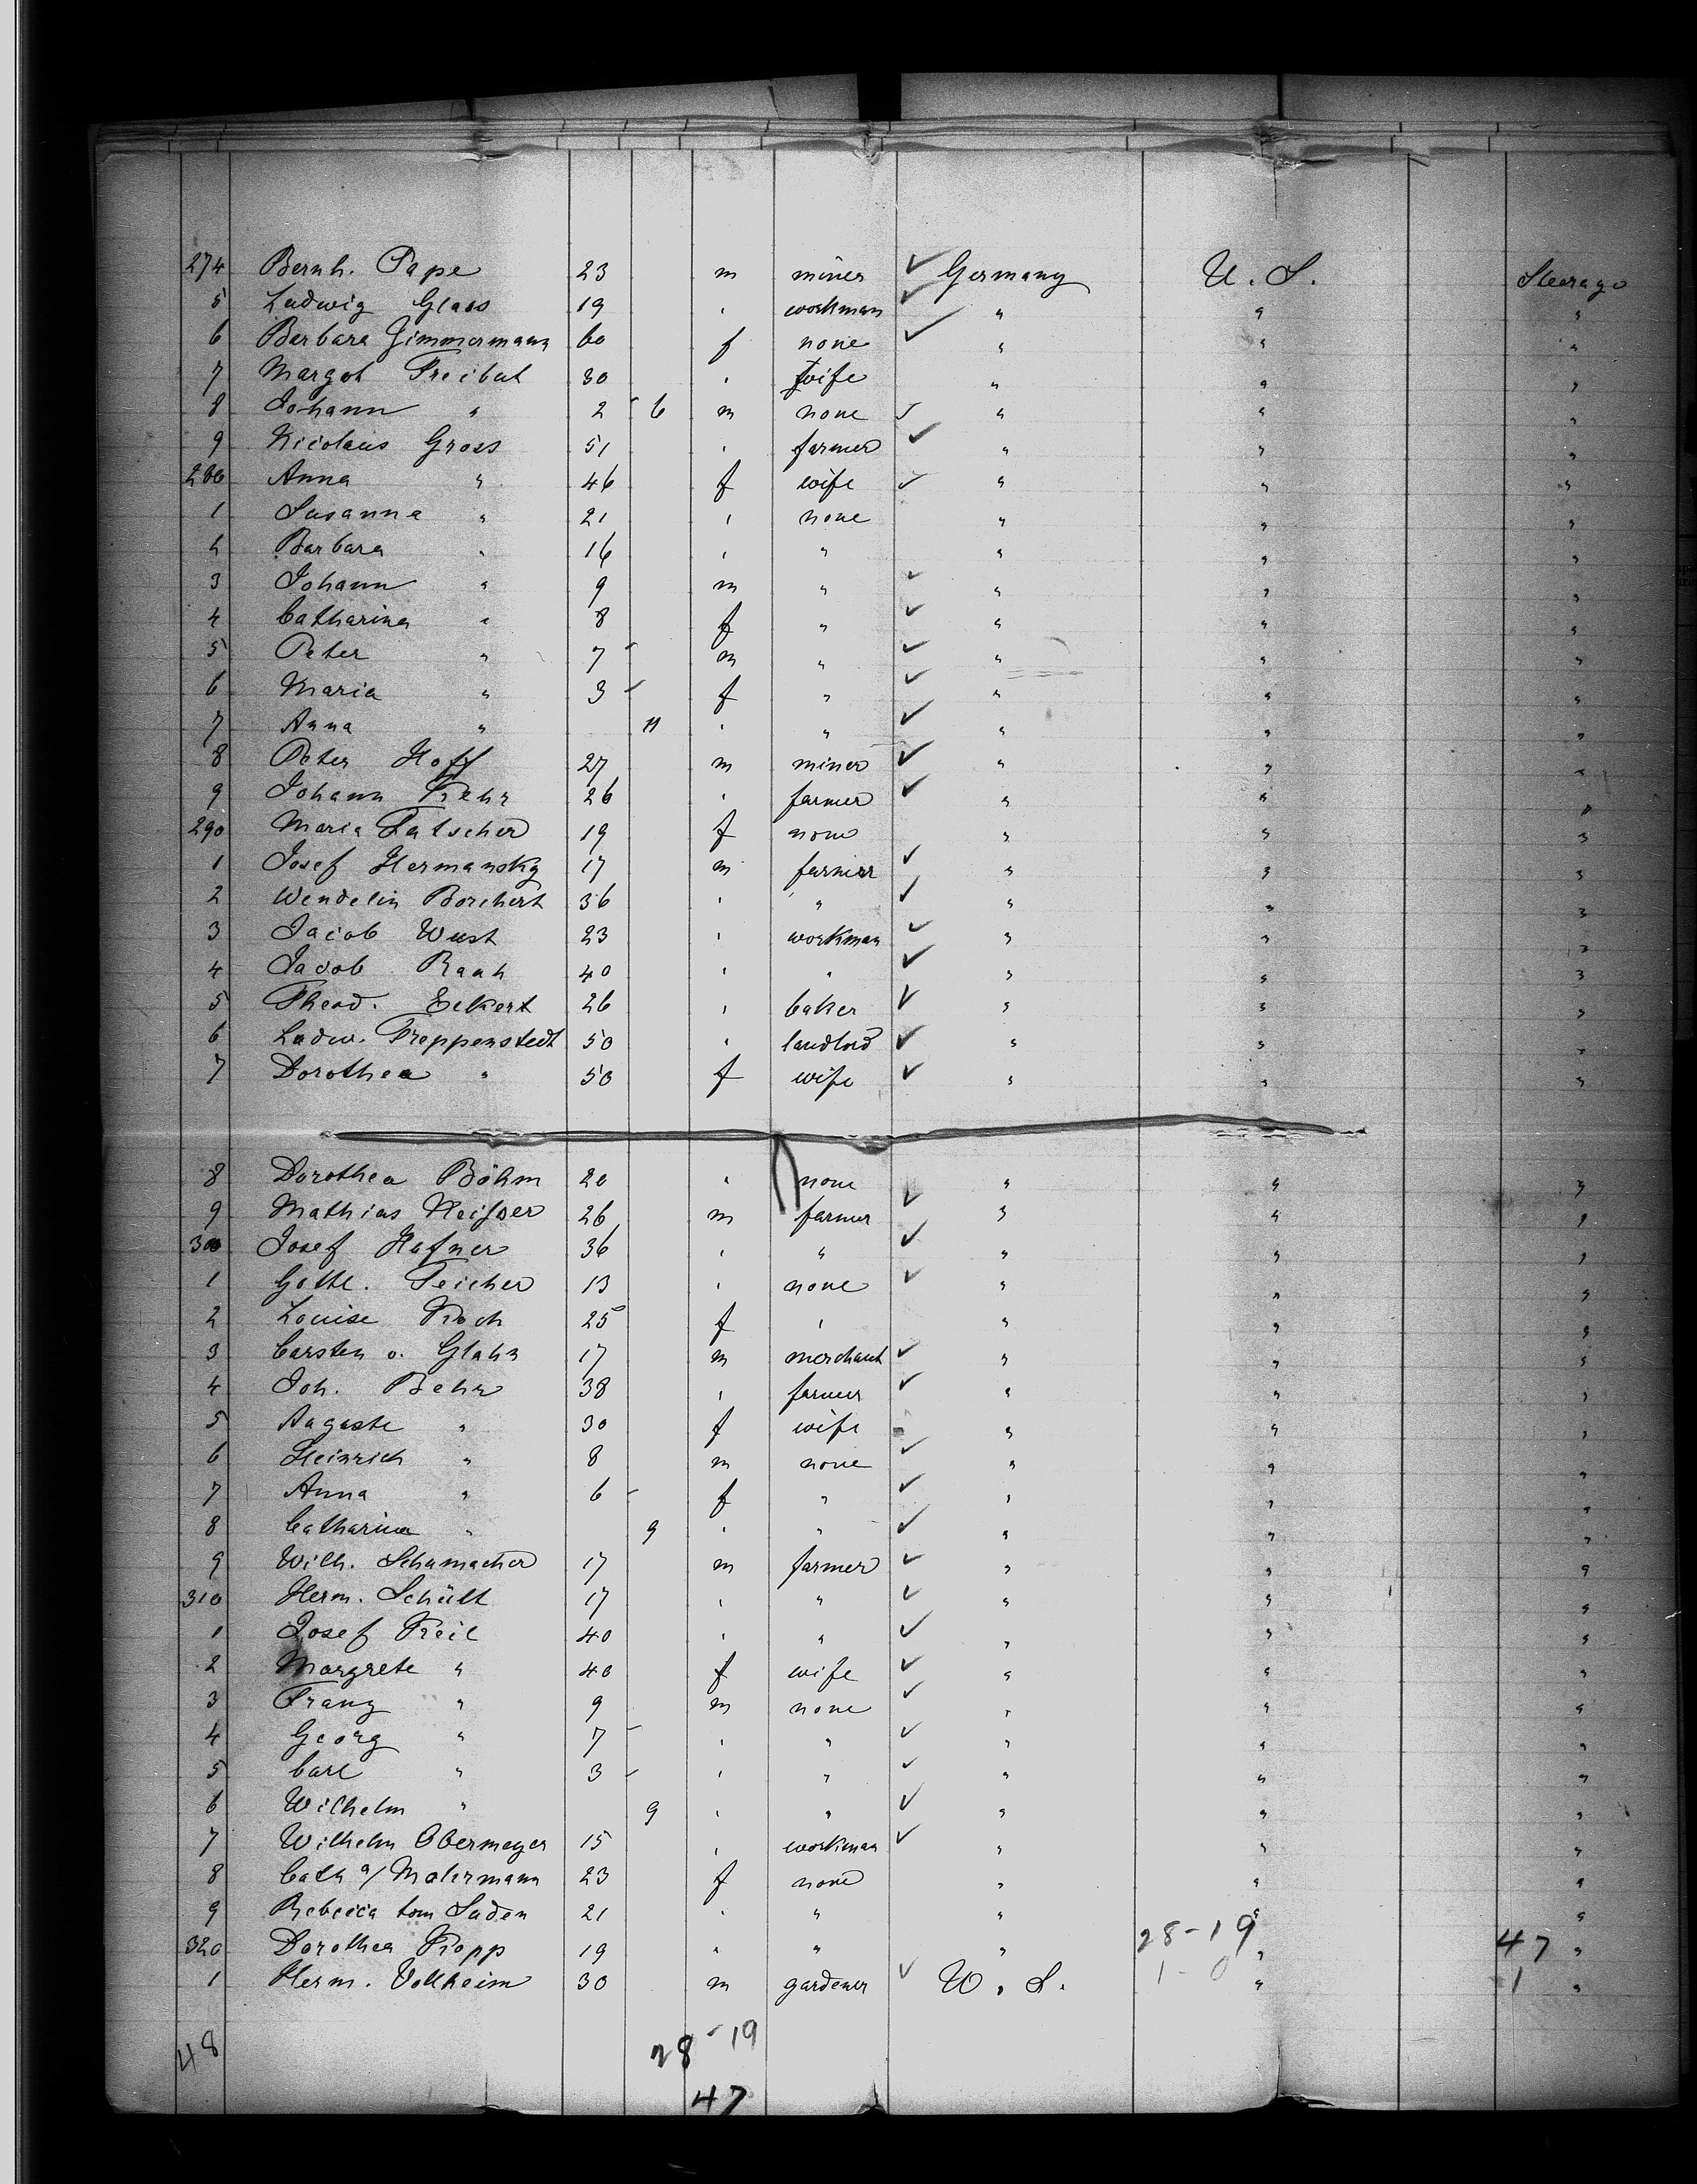 274 Bernh. Pape 23 m miner ✓ Germany U. S. Steerage
5 Ludwig Glass 19 " workman ✓ " " "
6 Barbara Zimmermann 60 f none ✓ " " "
7 Margot 30 " wife " " "
8 Johann " 2 6 m none ✓ " " "
9 Nicolaus Gross 51 " farmer ✓ " " "
280 Anna " 46 f wife ✓ " " "
1 Susanna " 21 " none " " "
2 Barbara " 16 " " " " "
3 Johann " 9 m " ✓ " " "
4 Catharina " 8 f " ✓ " " "
5 Peter " 7 m " ✓ " " "
6 Maria " 3 f " ✓ " " "
7 Anna " 11 " " ✓ " " "
8 Peter Hoff 27 m miner ✓ " " "
9 Johann 26 " farmer ✓ " " "
290 Maria Tatscher 19 f none " " "
1 Josef Hermansky 17 m farmer ✓ " " "
2 Wendelin Borchert 36 " " ✓ " " "
3 Jacob Wust 23 " workman ✓ " " "
4 Jacob 40 " " ✓ " " "
5 Theod. Eckert 26 " baker ✓ " " "
6 Ludw. Treppenstedt 50 " landlord ✓ " " "
7 Dorothea " 50 f wife ✓ " " "
8 Dorothea Böhm 20 " none " " "
9 Mathias 26 m farmer ✓ " " "
300 Josef Hafner 36 " " ✓ " " "
1 Gottl. Teicher 13 " none ✓ " " "
2 Louise Koch 25 f " " " "
3 Carsten v. Glahn 17 m merchant ✓ " " "
4 Joh. Behr 38 " farmer ✓ " " "
5 Auguste " 30 f wife " " "
6 Heinrich " 8 m none ✓ " " "
7 Anna " 6 f " ✓ " " "
8 Catharina " 9 " " ✓ " " "
9 Wilh. Schumacher 17 m farmer ✓ " " "
310 Herm. Schült 17 " " ✓ " " "
1 Josef 40 " " ✓ " " "
2 Margrete " 40 f wife ✓ " " "
3 Franz " 9 m none ✓ " " "
4 Georg " 7 " " ✓ " " "
5 Carl " 3 " " ✓ " " "
6 Wilhelm " 9 " " ✓ " " "
7 Wilhelm Obermeyer 15 " workman ✓ " " "
8 Cath a/ 23 f none " " "
9 Rebecca tom Suden 21 " " " " "
320 Dorothea Kopp 19 " " " 28-19 " 47 "
1 Herm. Vollheim 30 m gardener ✓ U. S. 1-0 " 1 "
48 28-19
47